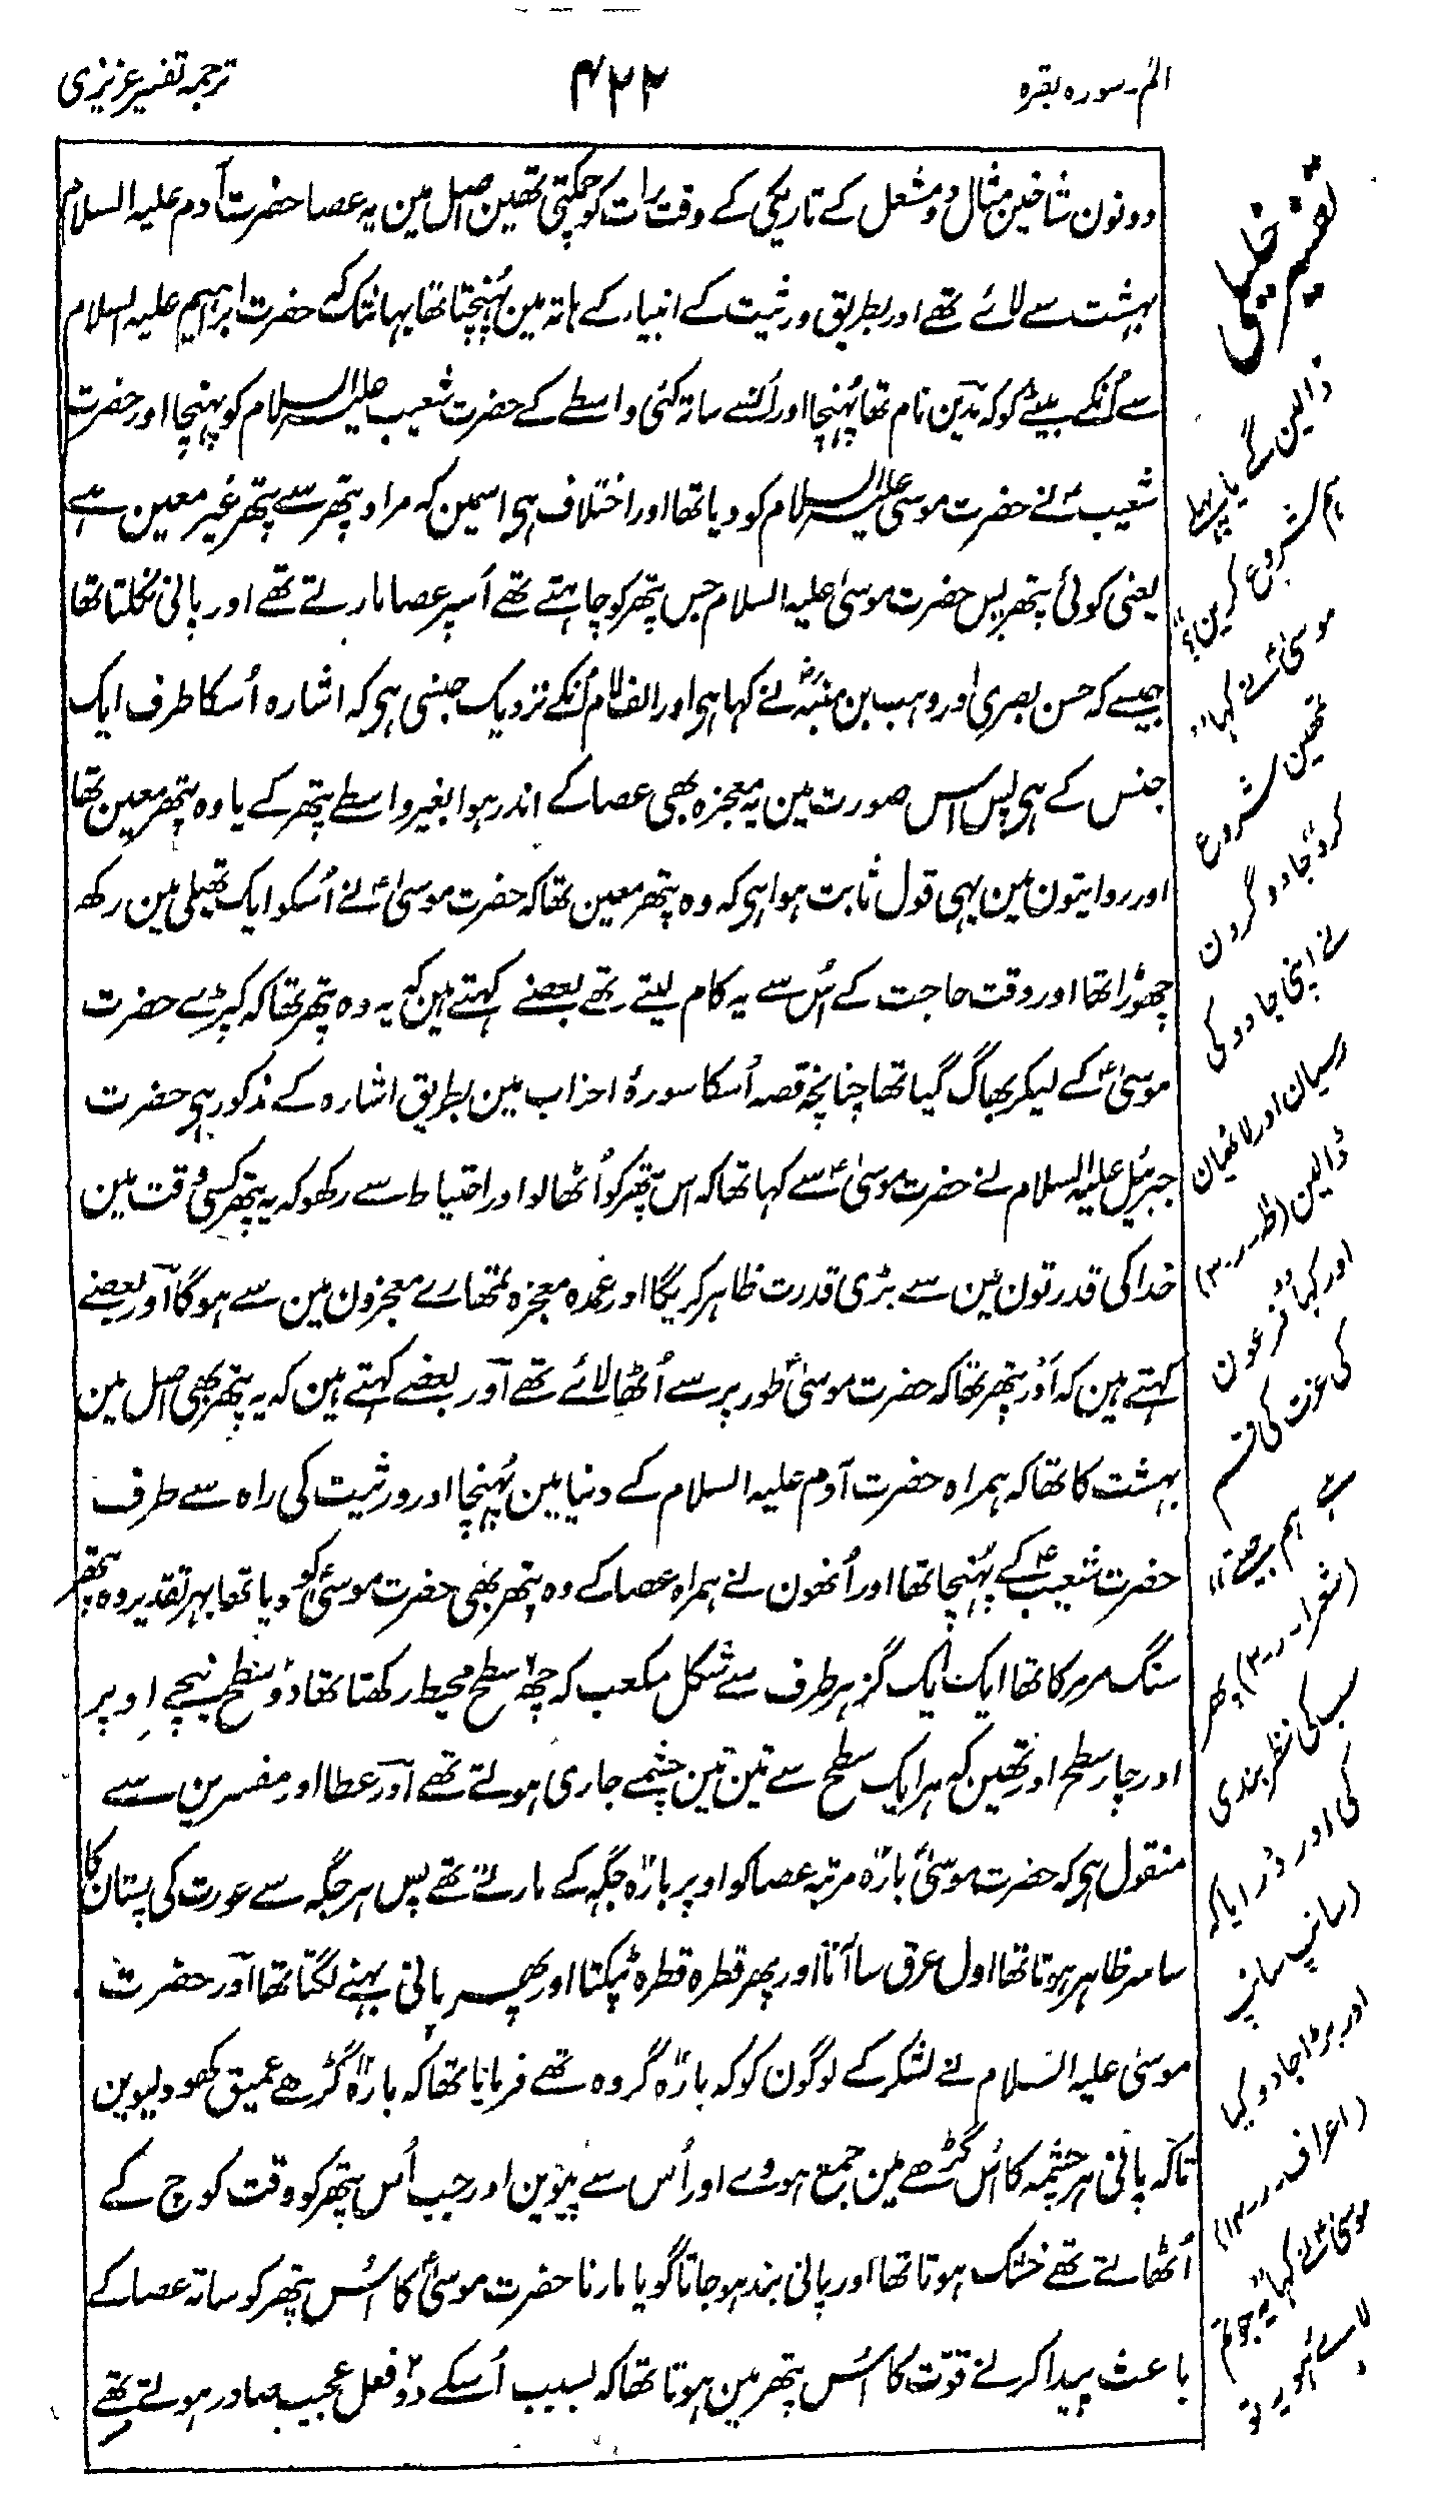 الم - سورہ بقرہ
۴۲۲
ترجمہ تفسیر عزیزی
دونون شاخین مثال دو مشعل کے تاریکی کے وقت رات کو چمکتی تھین اصل مین یہ عصا حضرت آدم علیہ السلام
بہشت سے لائے تھے اور بطریق ورثیت کے انبیاء کے ہاتہ مین پہُنچتا تھا یہانتک کہ حضرت ابراہیم علیہ السلام
سے اُنکے بیٹے کو کہ مدین نام تھا پہُنچا اور اُنسے ساتہ کئی واسطے کے حضرت شعیب علیہ السلام کو پہنچا اور حضرت
شعیبؑ نے حضرت موسیٰ علیہ السلام کو دیا تھا اور اختلاف ہی اسمین کہ مراد پتھر سے پتھر غیر معین ہے
یعنی کوئی پتھر پس حضرت موسیٰ علیہ السلام جس پتھر کو چاہتے تھے اُسپر عصا مارتے تھے اور پانی نکلتا تھا
جیسے کہ حسن بصری اور وہب بن منبہؓ نے کہا ہی اور الف لام اُنکے نزدیک جنسی ہی کہ اشارہ اُسکا طرف ایک
جنس کے ہی پس اس صورت مین یہ معجزہ بھی عصا کے اندر ہوا بغیر واسطے پتھر کے یا وہ پتھر معین تھا
اور روایتون مین یہی قول ثابت ہوا ہی کہ وہ پتھر معین تھا کہ حضرت موسیٰؑ نے اُسکو ایک تھیلی مین رکھ
چھوڑا تھا اور وقت حاجت کے اُس سے یہ کام لیتے تھے بعضے کہتے ہین کہ یہ وہ پتھر تھا کہ کپڑے حضرت
موسیٰؑ کے لیکر بھاگ گیا تھا چنانچہ قصہ اُسکا سورۂ احزاب مین بطریق اشارہ کے مذکور ہی حضرت
جبرئیل علیہ السلام نے حضرت موسیٰؑ سے کہا تھا کہ اس پتھر کو اُٹھا لو اور احتیاط سے رکھو کہ یہ پتھر کسی وقت مین
خدا کی قدرتون مین سے بڑی قدرت ظاہر کریگا اور عمدہ معجزہ تمھارے معجزون مین سے ہو گا اور بعضے
کہتے ہین کہ اَور پتھر تھا کہ حضرت موسیٰؑ طور پر سے اُٹھا لائے تھے اور بعضے کہتے ہین کہ یہ پتھر بھی اصل مین
بہشت کا تھا کہ ہمراہ حضرت آدم علیہ السلام کے دنیا مین پہُنچا اور ورثیت کی راہ سے طرف
حضرت شعیبؑ کے پہُنچا تھا اور اُنھون نے ہمراہ عصا کے وہ پتھر بھی حضرت موسیٰؑ کو دیا تھا بہر تقدیر وہ پتھر
سنگ مرمر کا تھا ایک ایک گز ہر طرف سے شکل مکعب کہ چھہ سطح محیط رکھتا تھا دو سطح نیچے اوپر
اور چار سطح اور تھین کہ ہر ایک سطح سے تین تین چشمے جاری ہوتے تھے اور عطا اور مفسرین سے
منقول ہی کہ حضرت موسیٰؑ بارہ مرتبہ عصا کو اوپر بارہ جگہ کے مارتے تھے پس ہر جگہ سے عورت کی پستان کا
سا سر ظاہر ہوتا تھا اول عرق سا آتا اور پھر قطرہ قطرہ ٹپکتا اور پھر پانی بہنے لگتا تھا اور حضرت
موسیٰ علیہ السلام نے لشکر کے لوگون کو کہ بارہ گروہ تھے فرمایا تھا کہ بارہ گڑھے عمیق کھود لیوین
تا کہ پانی ہر چشمہ کا اُس گڑھے مین جمع ہووے اور اُس سے پیوین اور جب اُس پتھر کو وقت کوچ کے
اُٹھاتے تھے خشک ہوتا تھا اور پانی بند ہو جاتا گویا مارنا حضرت موسیٰؑ کا اُس پتھر کو ساتہ عصا کے
باعث پیدا کرنے قوّت کا اُس پتھر مین ہوتا تھا کہ بسبب اُسکے دو فعل عجیب صادر ہوتے تھے
ڈالین گے یا پہلے
ہم شروع کرین؟
موسیٰؑ نے کہا
تمھین شروع
کرو جادوگرون
نے اپنی جادو کی
رسیان اور لاٹھیان
ڈالین (طہ - ۳)
اور کہا فرعون
کی عزت کی قسم
ہے ہم جیتے
(شعرا - ۳) پھر
سب کی نظر بندی
کی اور ڈرایا کہ
(سانپ سانپ
اور بڑا جادو کیا
(اعراف - ۱۳)
موسیٰؑ نے کہا یہ جو تم
لائے ہو